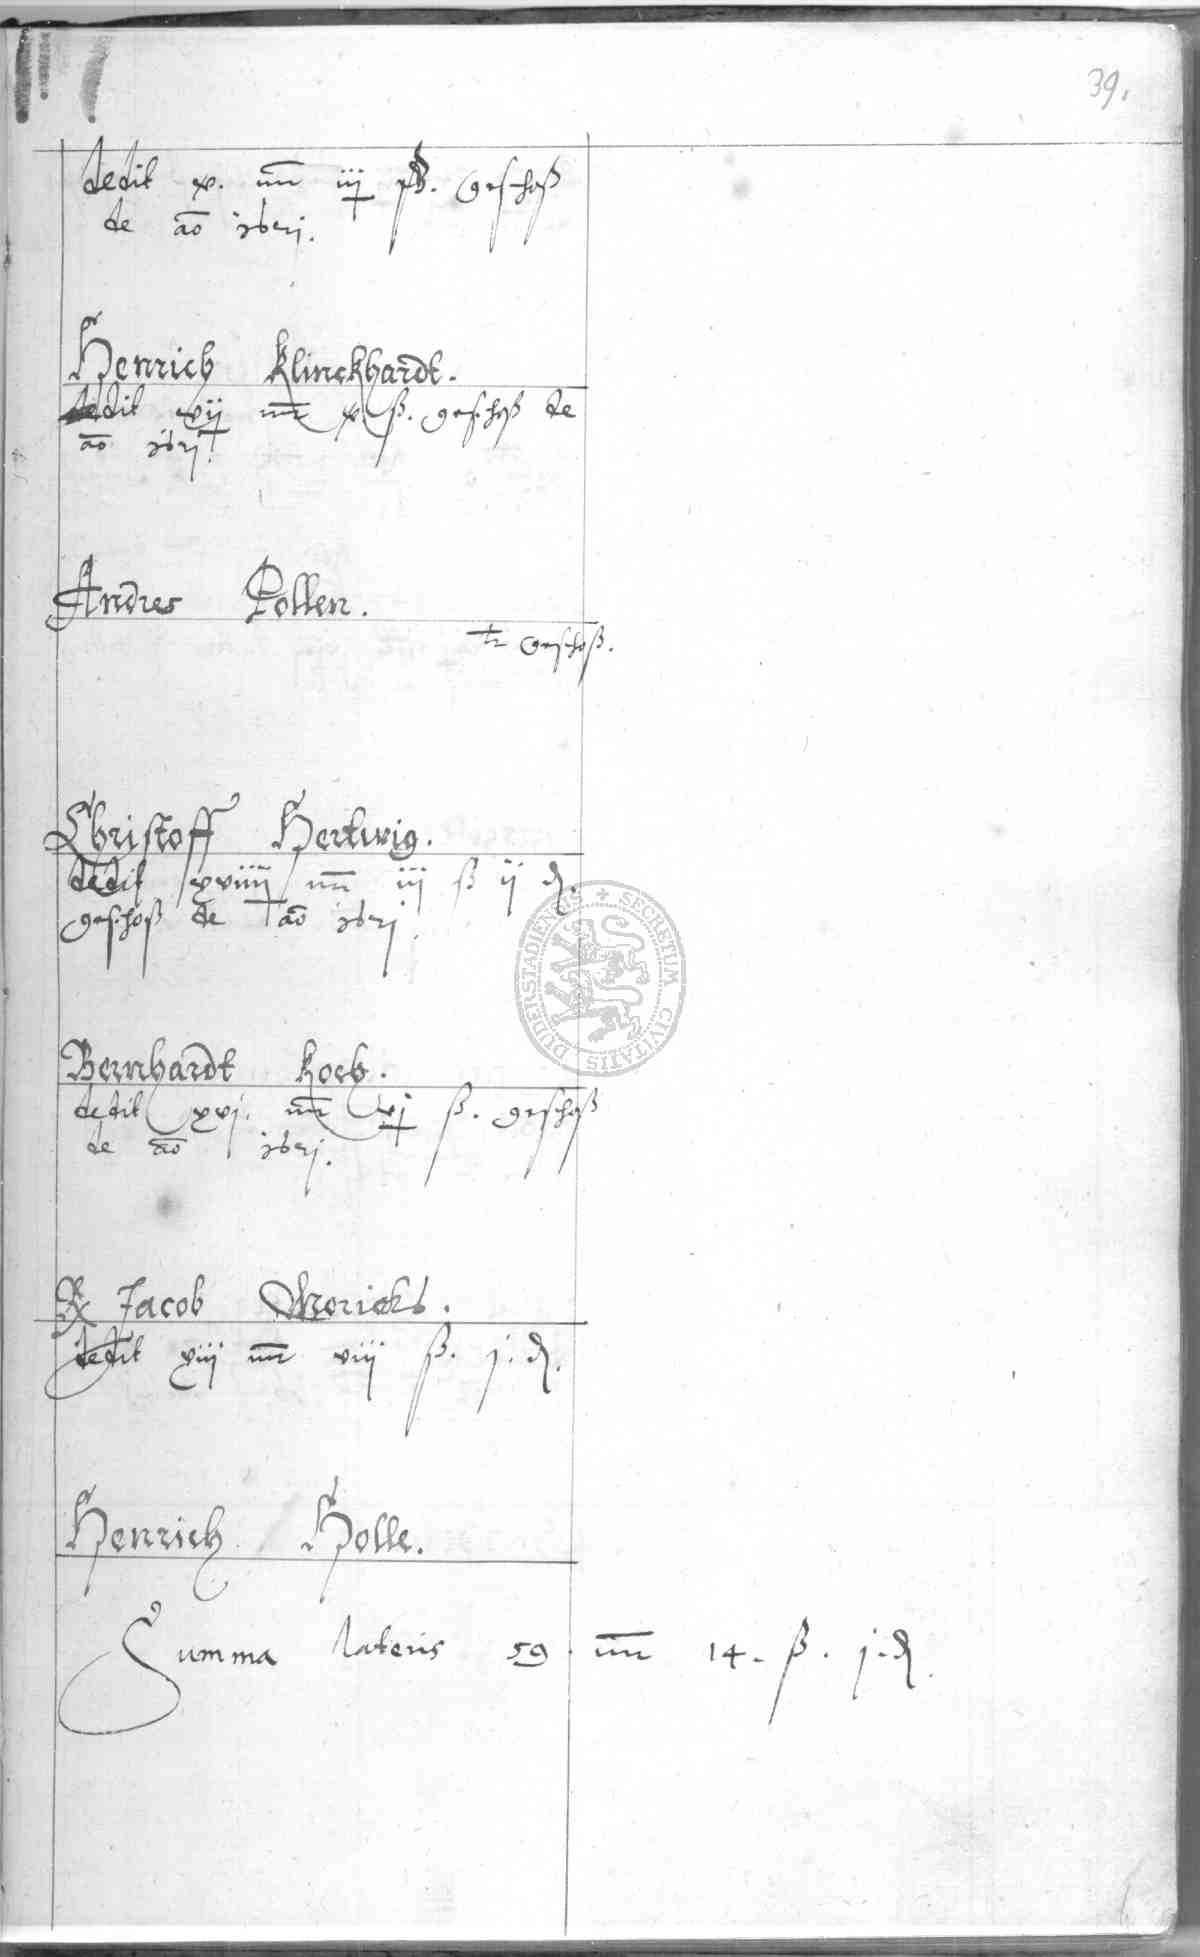 39.
dedit x. mr iij ß. geschoß
de ao 1611.
Henrich Klinckhardt.
dedit vij mr x ß. geschoß de
ao 1611.
Andres Pollen.
tr geschoß.
Christoff Hertwig.
dedit xviiij mr iij ß ij d.
geschoß de ao 1611
Bernhardt Koch.
dedit xvj. mr vj ß. geschoß
de ao 1611.
Jacob
dedit xiij mr viij ß. j. d.
Henrich Holle.
Summa lateris 59. mr 14. ß. j. d.
SECRETUM CIVITATIS DUDERSTADIENSIS